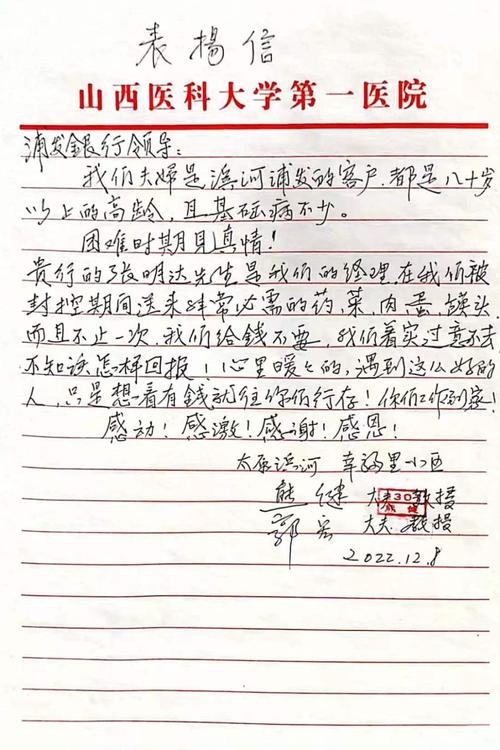 表揚信
山西医科大学第一医院
浦发銀行领导:
我们夫婦是滨河浦发的客户.都是八十岁
以上的高龄,且基础病不少。
困难时期見真情!
贵行的张明达先生是我们的经理,在我们被
封控期间送来非常必需的药,菜,肉,蛋,馒头,
而且不止一次,我们给钱不要,我们着实过意不去
不知该怎样回报!心里暖々的,遇到这么好的
人,只是想着有錢就往你们行存!你们工作到家!
感动!感激!感谢!感恩!
太原滨河 幸福里小区
熊健 大夫 教授
郭宏 大夫 教授
2022.12.8